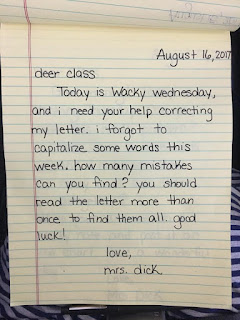 August 16, 2017
deer class
Today is Wacky wednesday,
and i need your help correcting
my letter. i forgot to
capitalize some words this
week. how many mistakes
can you find? you should
read the letter more than
once to find them all. good
luck!
love,
mrs. dick